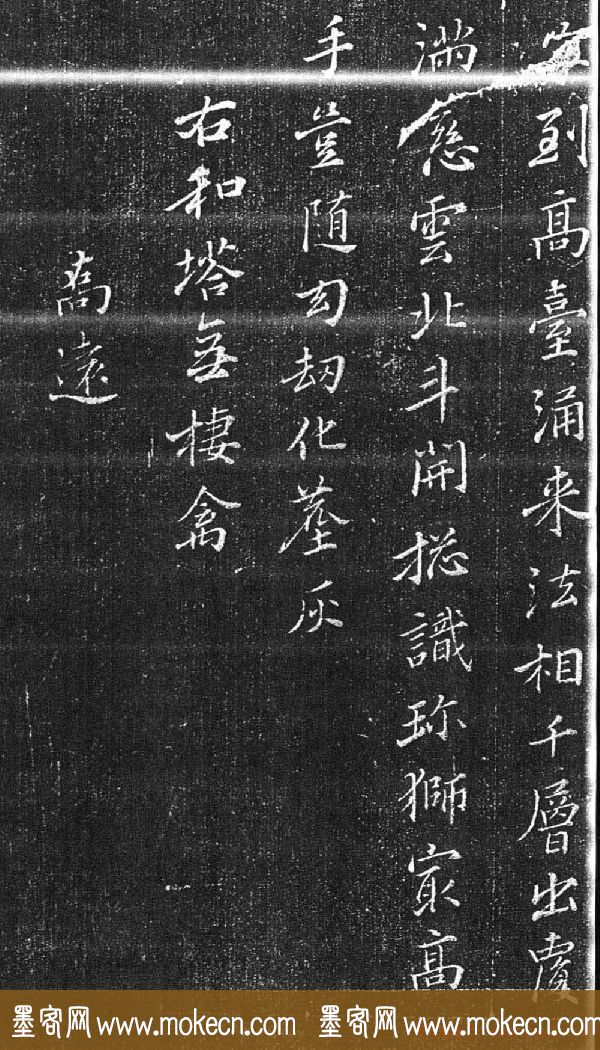 到高臺涌来法相千層出覆
滿慈雲北斗開揔識珎獅㝡高
手豈随勾劫化塵灰
右和塔無棲禽
喬遠
墨客网 www.mokecn.com 墨客网 www.mokecn.com